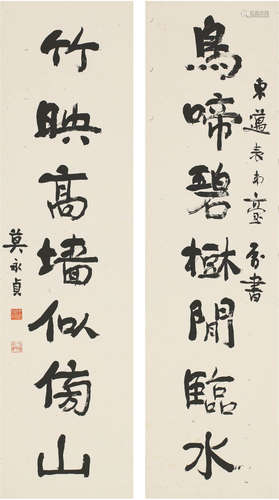 鳥啼碧樹閒臨水
東邁表弟臺飭書
竹映高墻似傍山
莫永貞